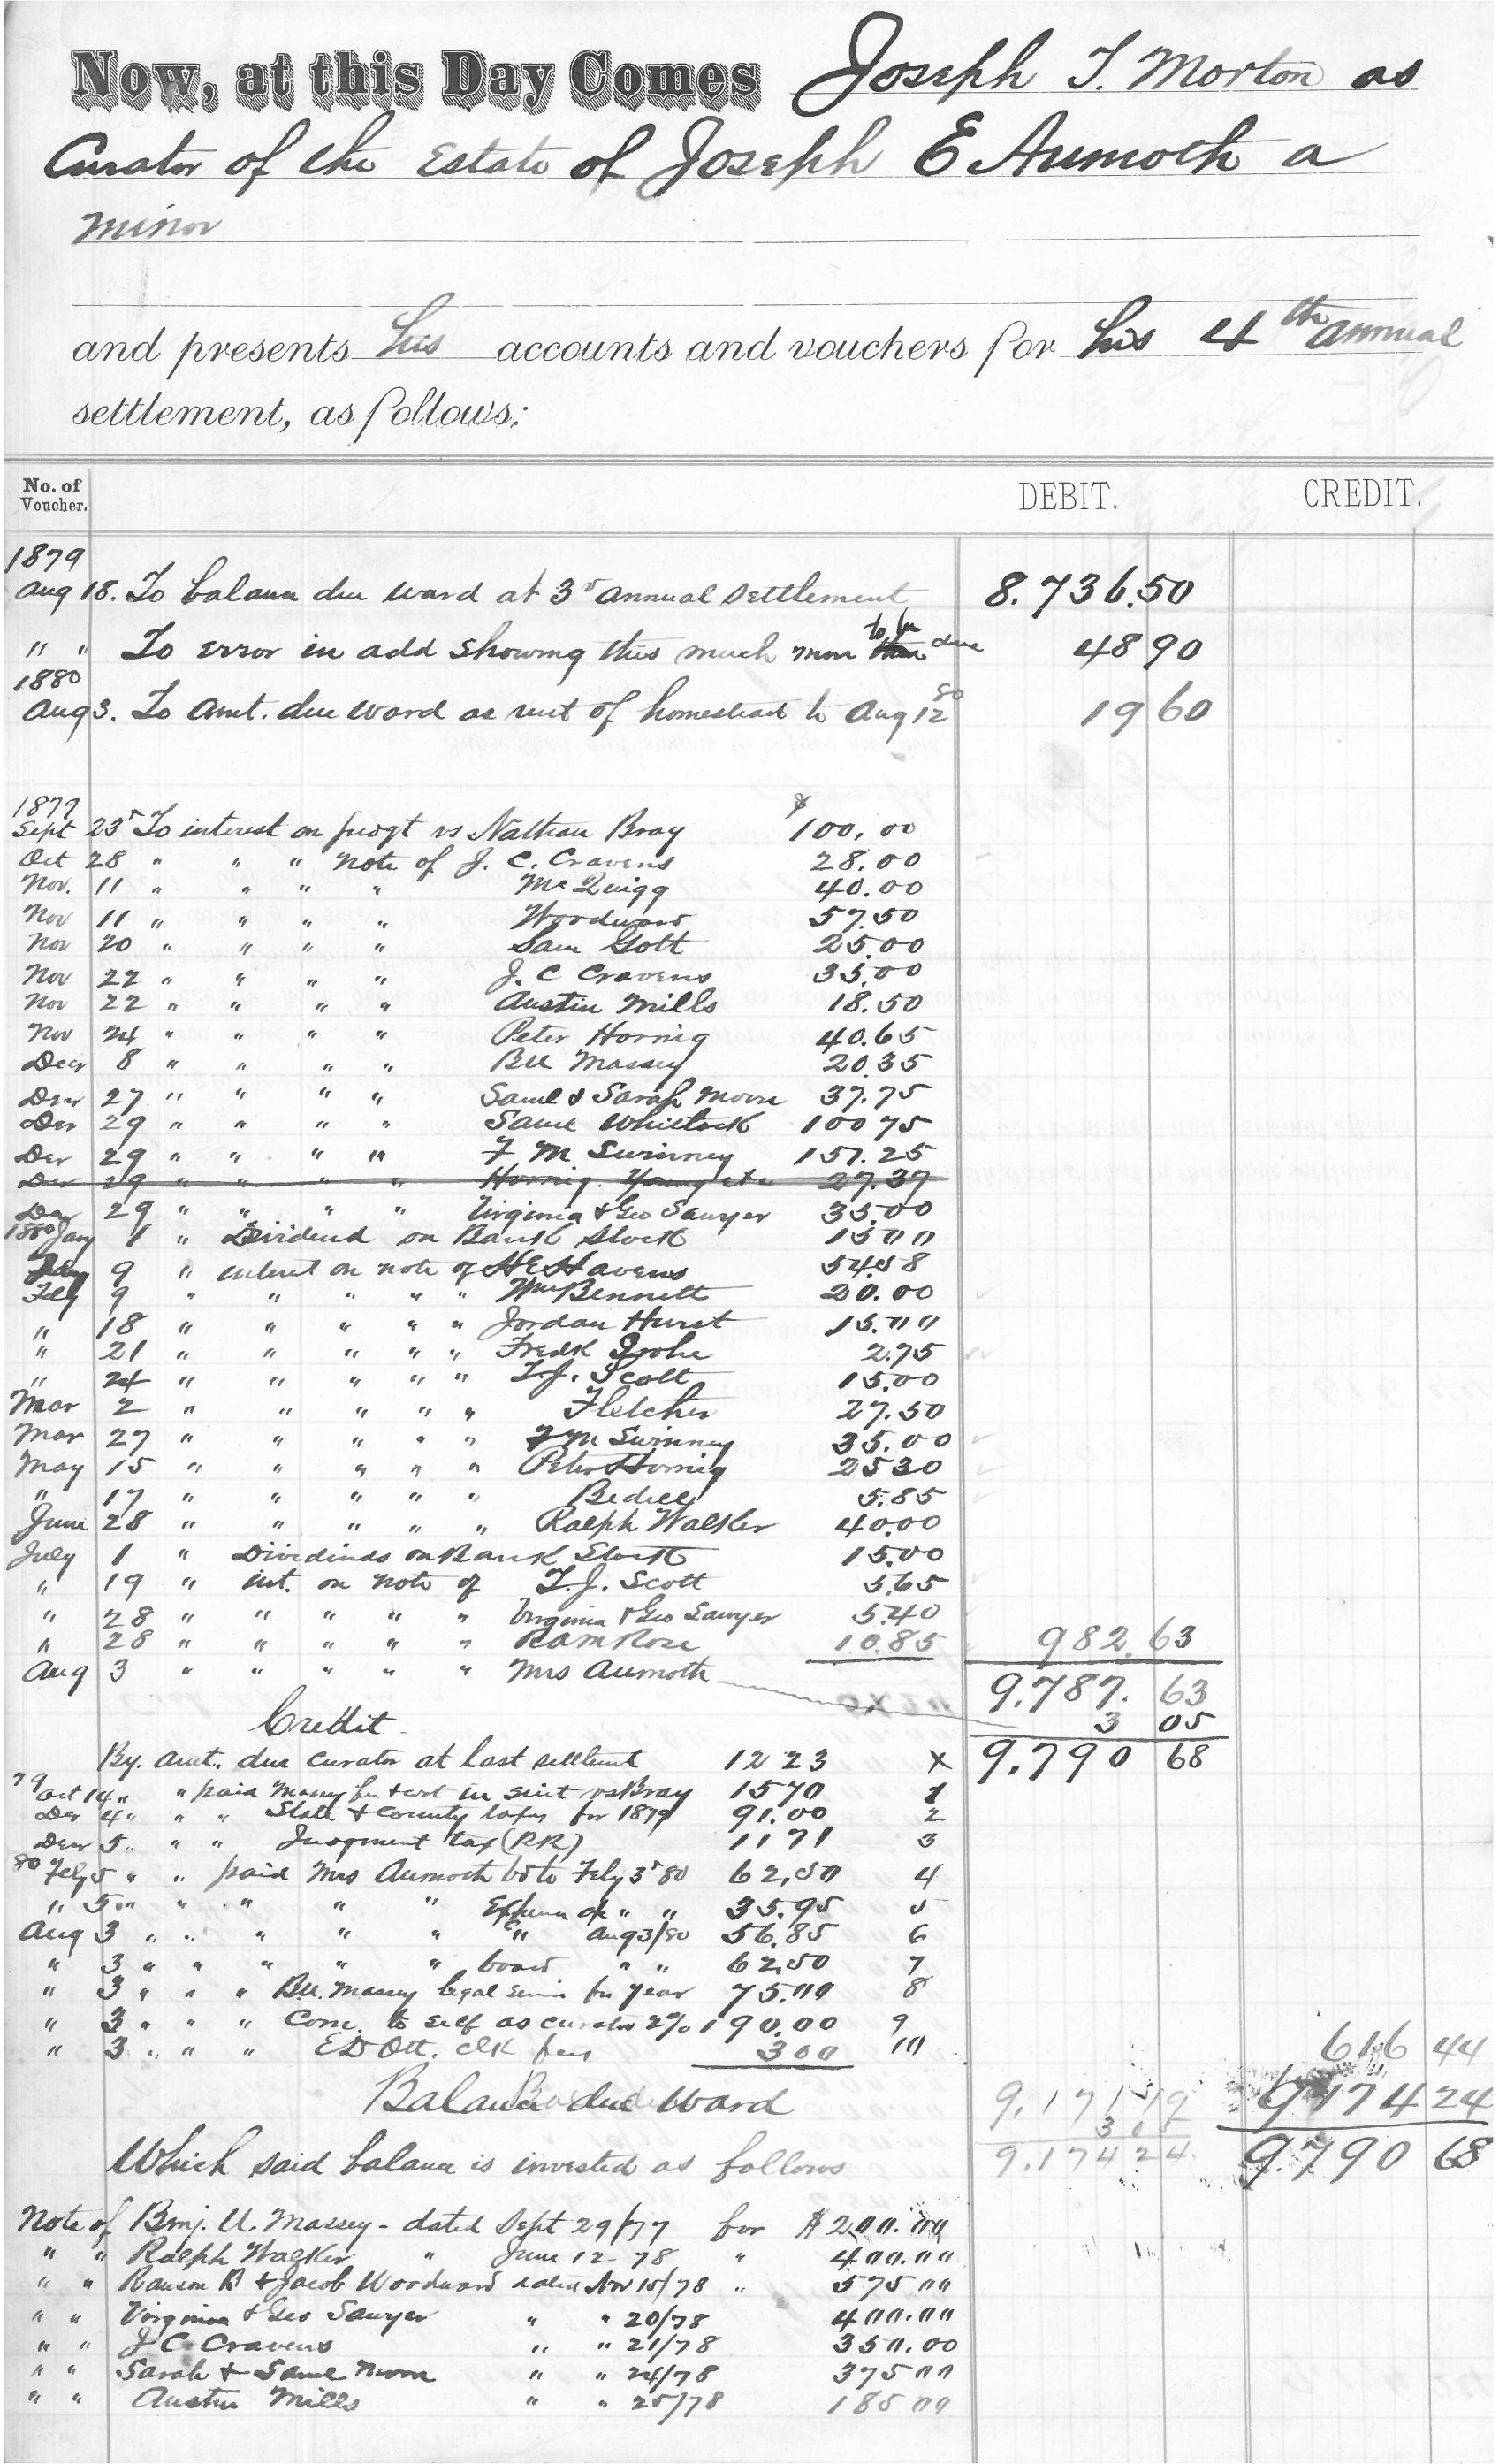 Now, at this Day Comes Joseph T. Morton as
Curator of the Estate of Joseph E Aumoth a
minor
and presents his accounts and vouchers for his 4th annual
settlement, as follows:
No. of Voucher. DEBIT. CREDIT.
1879
Aug 18. To balance due ward at 3d annual settlement 8.736.50
" " To error in add showing this much more to be due 48 90
1880
Aug 3. To Amt. due ward as rent of homestead to Aug 12 80 19 60
1879 $
Sept 25 To interest on judgt vs Nathan Bray 100.00
Oct 28 " " " note of J. C. Cravens 28.00
Nov. 11 " " " " McQuigg 40.00
Nov 11 " " " " Woodward 57.50
Nov 20 " " " " Sam Gott 25.00
Nov 22 " " " " J. C Cravens 35.00
Nov 22 " " " " Austin Mills 18.50
Nov 24 " " " " Peter Hornig 40.65
Decr 8 " " " " BU Massey 20.35
Decr 27 " " " " Saml & Sarah Moore 37.75
Decr 29 " " " " Saml Whitlock 100 75
Dec 29 " " " " F M Swinney 157.25
Dec 29 " " " " Hornig. Young et a 27.37
Dec 29 " " " " Virginia & Geo Sawyer 35.00
1880 Jany 1 " Dividend on Bank Stock 15 00
Jany 9 " interest on note of H E Havens 54.58
Feby 9 " " " " " Wm Bennett 20.00
" 18 " " " " " Jordan Hurst 15.00
" 21 " " " " " Fredk Grohe 2.75
" 24 " " " " " T.J. Scott 15.00
Mar 2 " " " " " Fletcher 27.50
Mar 27 " " " " " F M Swinney 35.00
May 15 " " " " " Peter Hornig 25 30
" 17 " " " " " Bedell 5.85
June 28 " " " " " Ralph Walker 40.00
July 1 " Dividends on Bank Stock 15.00
" 19 " int. on note of T.J. Scott 5.65
" 28 " " " " " Virginia & Geo Sawyer 5.40
" 28 " " " " " Rose 10.85 982.63
Aug 3 " " " " " Mrs Aumoth 9.787. 63
Credit 3 05
By. amt. due curator at last settlemt 12 23 x 9.790 68
79 Oct 14 " " paid Massey fee & cost in suit vs Bray 15 70 1
Dec 4 " " " State & County taxes for 1879 91.00 2
Decr 5 " " " Judgment tax (RR) 11 71 3
80 Feby 5 " " paid Mrs Aumoth bd to Feby 3d 80 62.50 4
" 5 " " " " " Expense of " " 35.95 5
Aug 3 " " " " " " Aug 3/80 56.85 6
" 3 " " " " " board " " 62.50 7
" 3 " " " B.U. Massey legal servic for year 75.00 8
" 3 " " " Com. to self as curator 2% 190.00 9
" 3 " " " E D Ott. Clk fees 3 00 10 616 44
Balance due Ward 9.171 19 9174 24
3 05
Which said balance is invested as follows 9.174 24 9790 68
Note of Benj. U. Massey - dated Sept 29/77 for $200.00
" " Ralph Walker " June 12-78 " 400.00
" " Ranson B & Jacob Woodward dated Nov 15/78 " 575 00
" " Virginia & Geo Sawyer " " 20/78 400.00
" " J. C. Cravens " " 21/78 350.00
" " Sarah & Saml Moore " " 24/78 375 00
" " Austin Mills " " 25/78 185 00